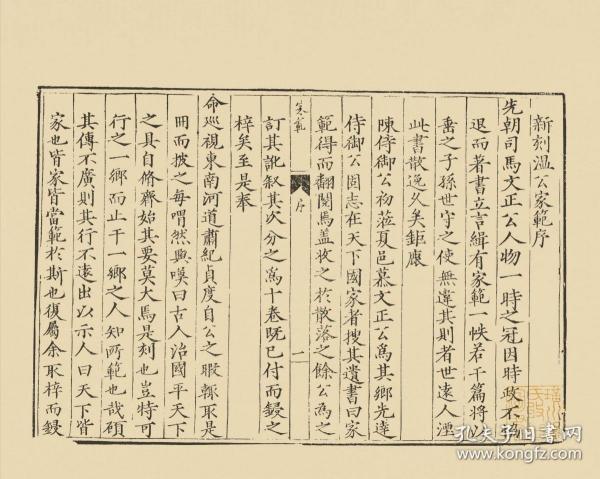 新刻溫公家範序
先朝司馬文正公人物一時之冠因時政不協
退而著書立言緝有家範一帙若干篇將以
垂之子孫世守之使無違其則者世遠人湮
此書散逸久矣鉅鹿
陳侍御公初蒞夏邑慕文正公爲其鄉先達
侍御公固志在天下國家者搜其遺書曰家
範得而翻閱焉蓋收之於散落之餘公爲之
家範 序 一
訂其訛叙其次分之爲十卷既已付而鋟之
梓矣至是奉
命巡視東南河道肅紀貞度自公之暇輒取是
冊而披之每喟然興嘆曰古人治國平天下
之具自脩齊始其要莫大焉是刻也豈特可
行之一鄉而止于一鄉之人知所範也哉碩
其傳不廣則其行不遠出以示人曰天下皆
家也皆家皆當範於斯也復屬余取梓而鋟
孔夫子旧书网
www.kongfz.com